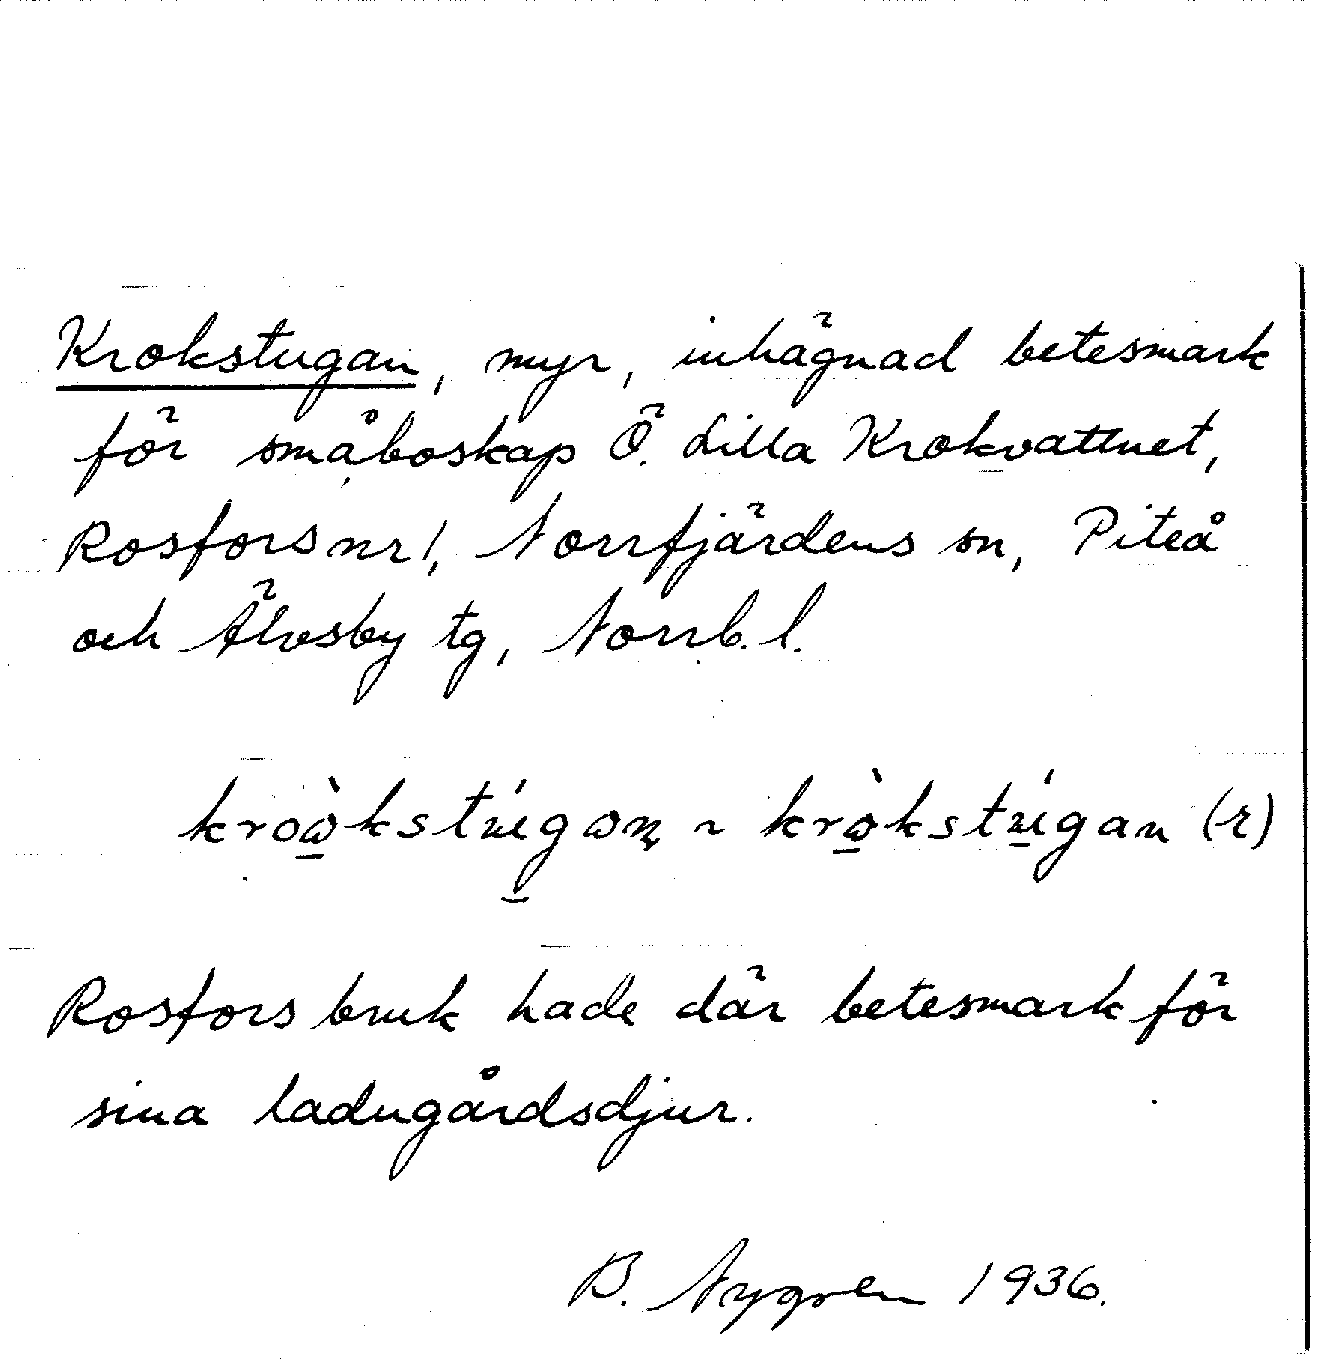 Krokstugan, myr, inhägnad betesmark
för småboskap Ö. Lilla Krokvattnet,
Rosfors nr 1, Norrfjärdens sn, Piteå
och Älvsby tg, Norrb. l.
(r)
Rosfors bruk hade där betesmark för
sina ladugårdsdjur.
B. Nygren 1936.